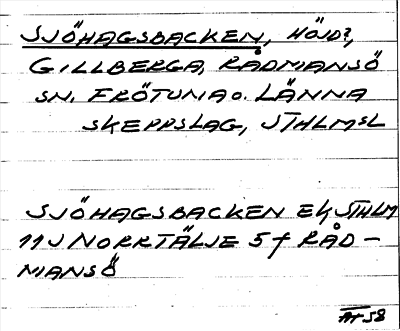 SJÖHAGSBACKEN, HÖJD?,
GILLBERGA, RÅDMANSÖ
SN. FRÖTUNA O. LÄNNA
SKEPPSLAG, STHLMSL
SJÖHAGSBACKEN EK STHLM
11J NORRTÄLJE 5f RÅD-
MANSÖ
AT 58